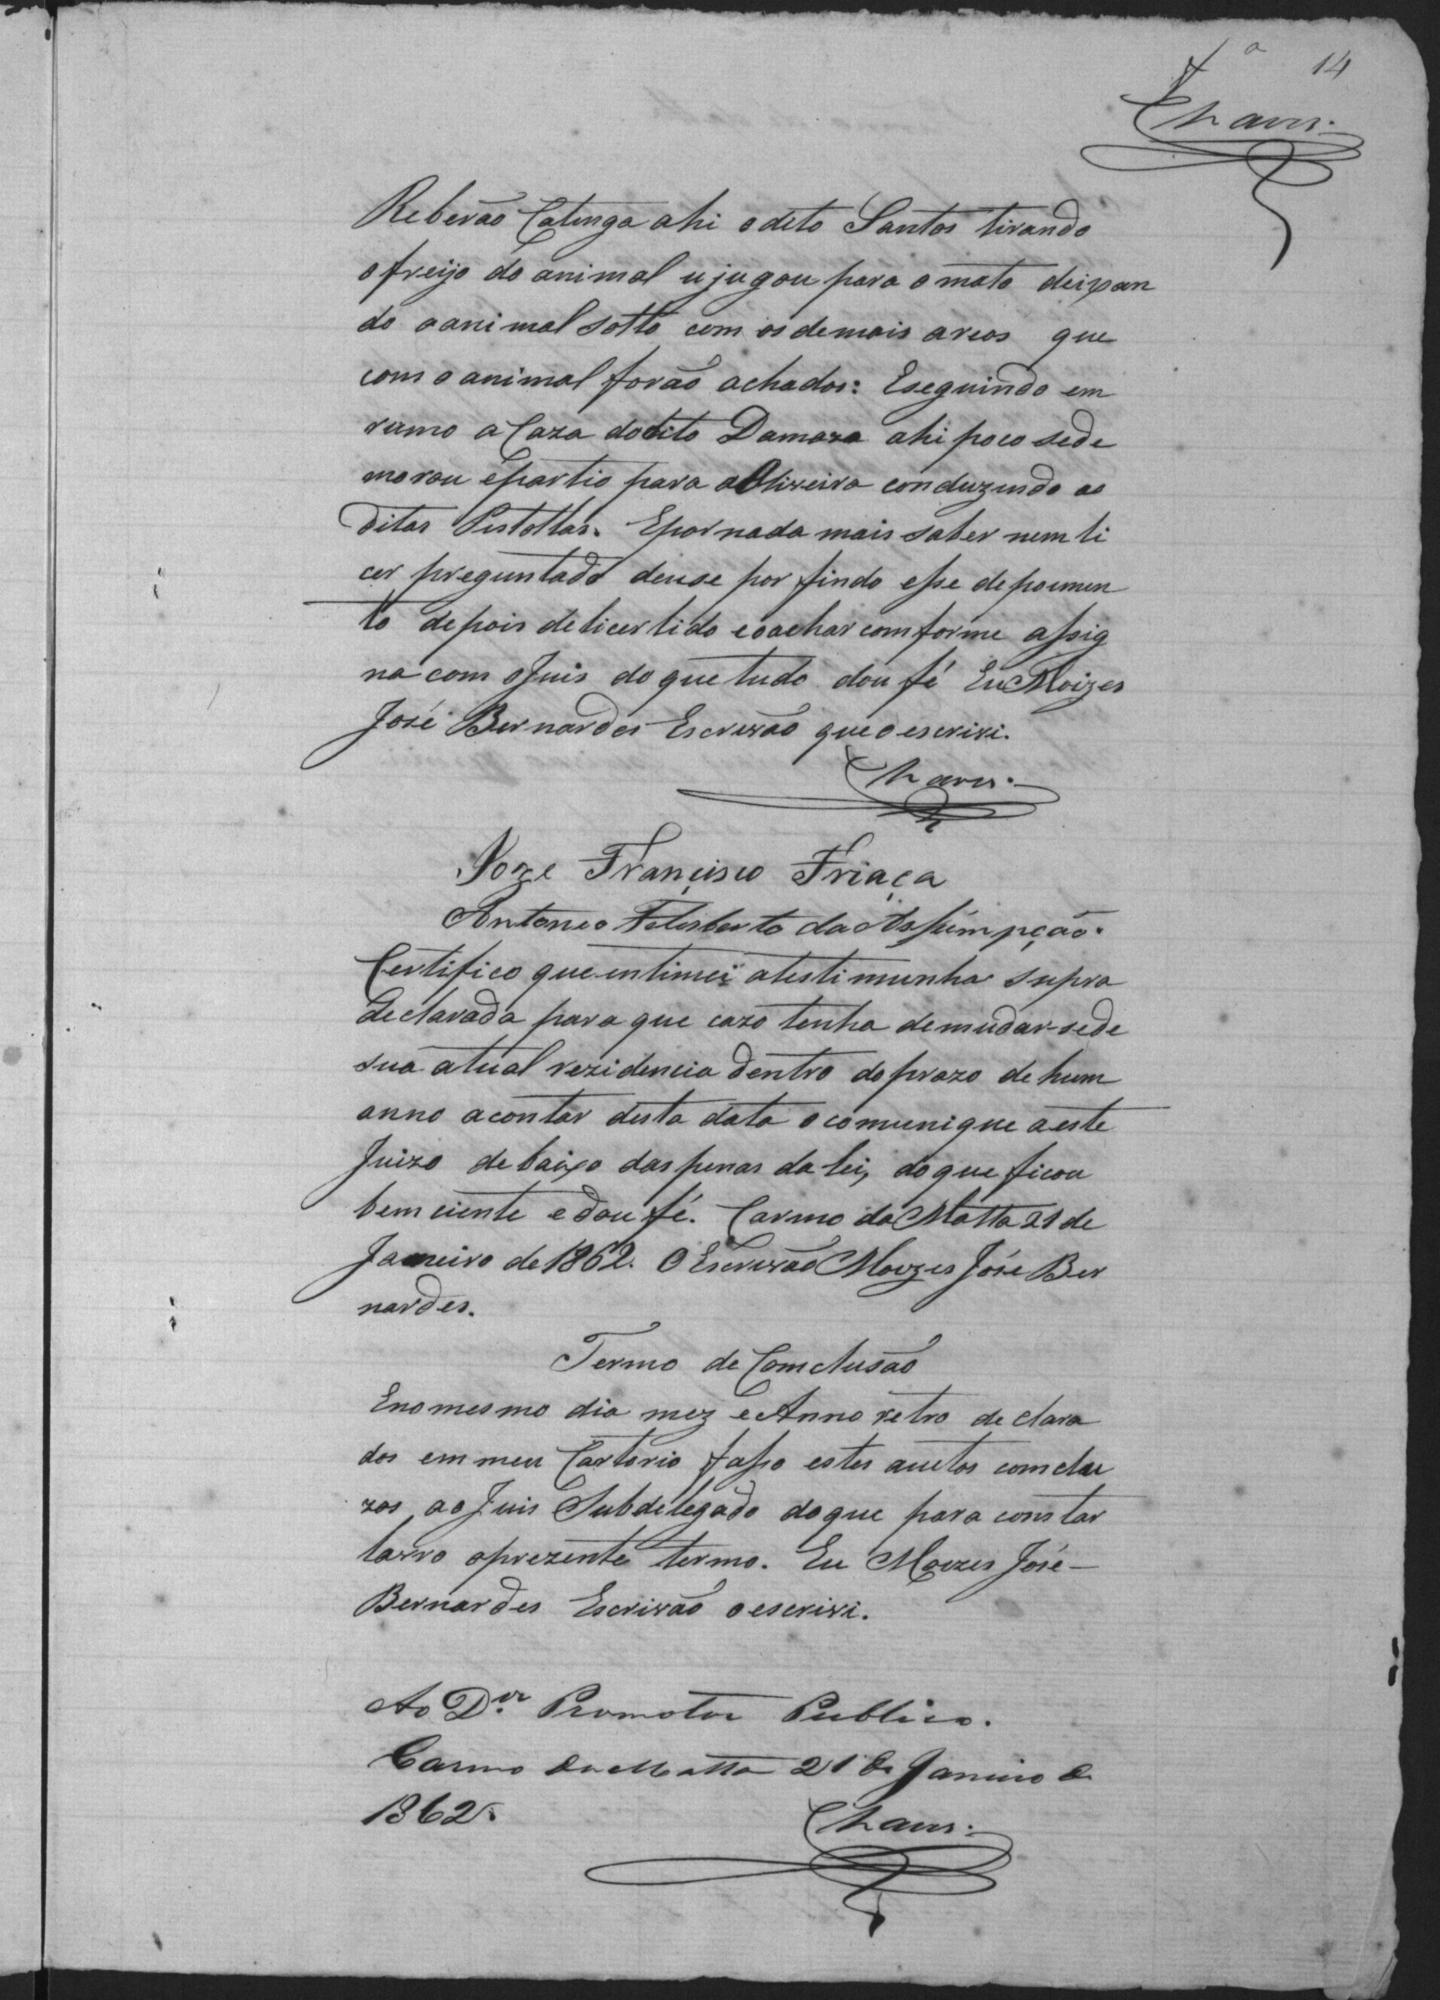 14
Chaves.
Reberão Catinga ahi o dito Santos tirando
o freijo do animal e jugou para o mato deixan
do o animal solto com os demais areos que
com o animal forão achados: E seguindo em
rumo a Caza do dito Damazo ahi poco se de
morou e partio para a Oliveira conduzindo as
ditas Pistollas. E por nada mais saber nem li
cer preguntado deuse por findo esse depoimen
to depois de li cer lido e o achar comforme assig
na com o Juis do que tudo dou fé Eu Moizes
José Bernardes Escrivão que o escrivi.
Chaves.
Joze Francisco Friaça
Antoneo Felisberto da Assumpção.
Certifico que intimei a testimunha supra
declarada para que cazo tenha de mudar-se de
sua atual rezidencia dentro do prazo de hum
anno a contar desta data o comunique a este
Juizo debaixo das penas da lei, do que ficou
bem ciente e dou fé. Carmo da Matta 21 de
Janeiro de 1862. O Escrivão Moizes José Ber
nardes.
Termo de Comclusão
E no mesmo dia mez e Anno retro declara
dos em meu Cartorio fasso estes autos comclu
zos ao Juis Subdelegado do que para constar
lavro o prezente termo. Eu Moizes José
Bernardes Escrivão o escrivi.
Ao D.or Promotor Publico.
Carmo da Matta 21 de Janeiro de
1862.
Chaves.